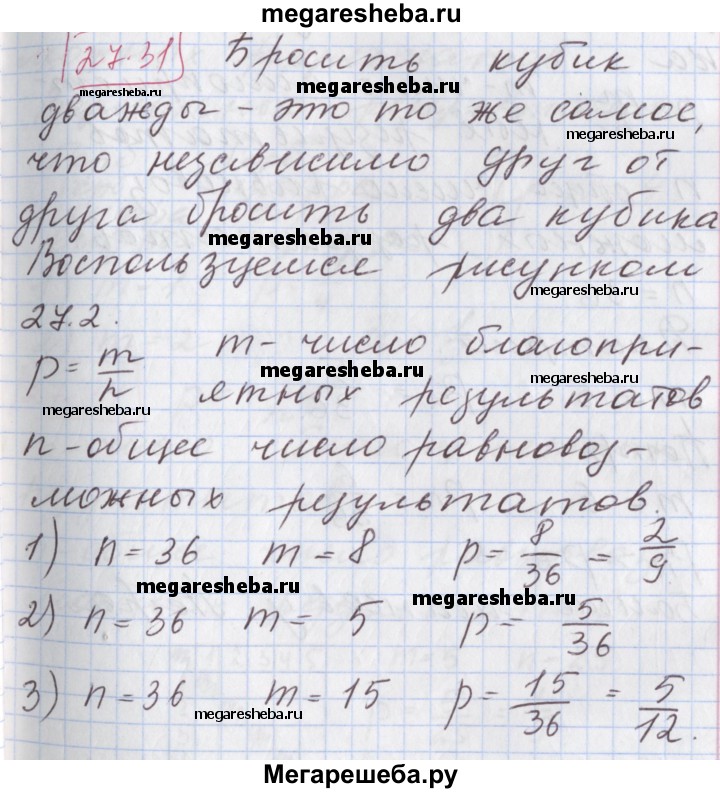 megaresheba.ru
27.31 Бросить кубик
megaresheba.ru megaresheba.ru
дважды - это то же самое,
megaresheba.ru
что независимо друг от
друга бросить два кубика
megaresheba.ru
Воспользуемся рисунком
megaresheba.ru
27.2.
p = m/n m - число благопри-
megaresheba.ru
megaresheba.ru
ятных результатов
megaresheba.ru
n - общее число равновоз-
можных результатов.
1) n = 36 m = 8 p = 8/36 = 2/9
megaresheba.ru megaresheba.ru
2) n = 36 m = 5 p = 5/36
3) n = 36 m = 15 p = 15/36 = 5/12.
megaresheba.ru
megaresheba.ru
Мегарешеба.ру